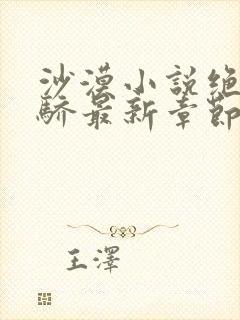 沙漠小說绝
驕最新章節
王澤